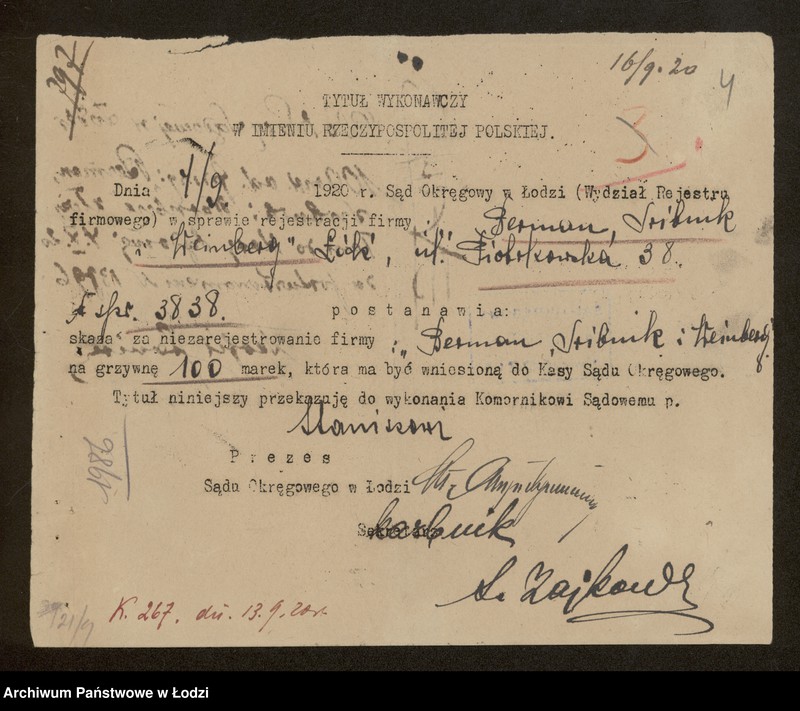 16/9.20
4
3.
TYTUŁ WYKONAWCZY
W IMIENIU RZECZYPOSPOLITEJ POLSKIEJ.
Dnia 7/9 1920 r. Sąd Okręgowy w Łodzi (Wydział Rejestru
firmowego) w sprawie rejestracji firmy: „Berman, Sribnik
i Weinberg" Łódź, ul. Piotrkowska 38.
A spr. 3838. postanawia:
skazać za niezarejestrowanie firmy: „Berman, Sribnik i Weinberg"
na grzywnę 100 marek, która ma być wniesioną do Kasy Sądu Okręgowego.
Tytuł niniejszy przekazuję do wykonania Komornikowi Sądowemu p.
Prezes
Sądu Okręgowego w Łodzi
Sekretarz
21/9
K. 267. dn. 13.9.20 r.
Archiwum Państwowe w Łodzi